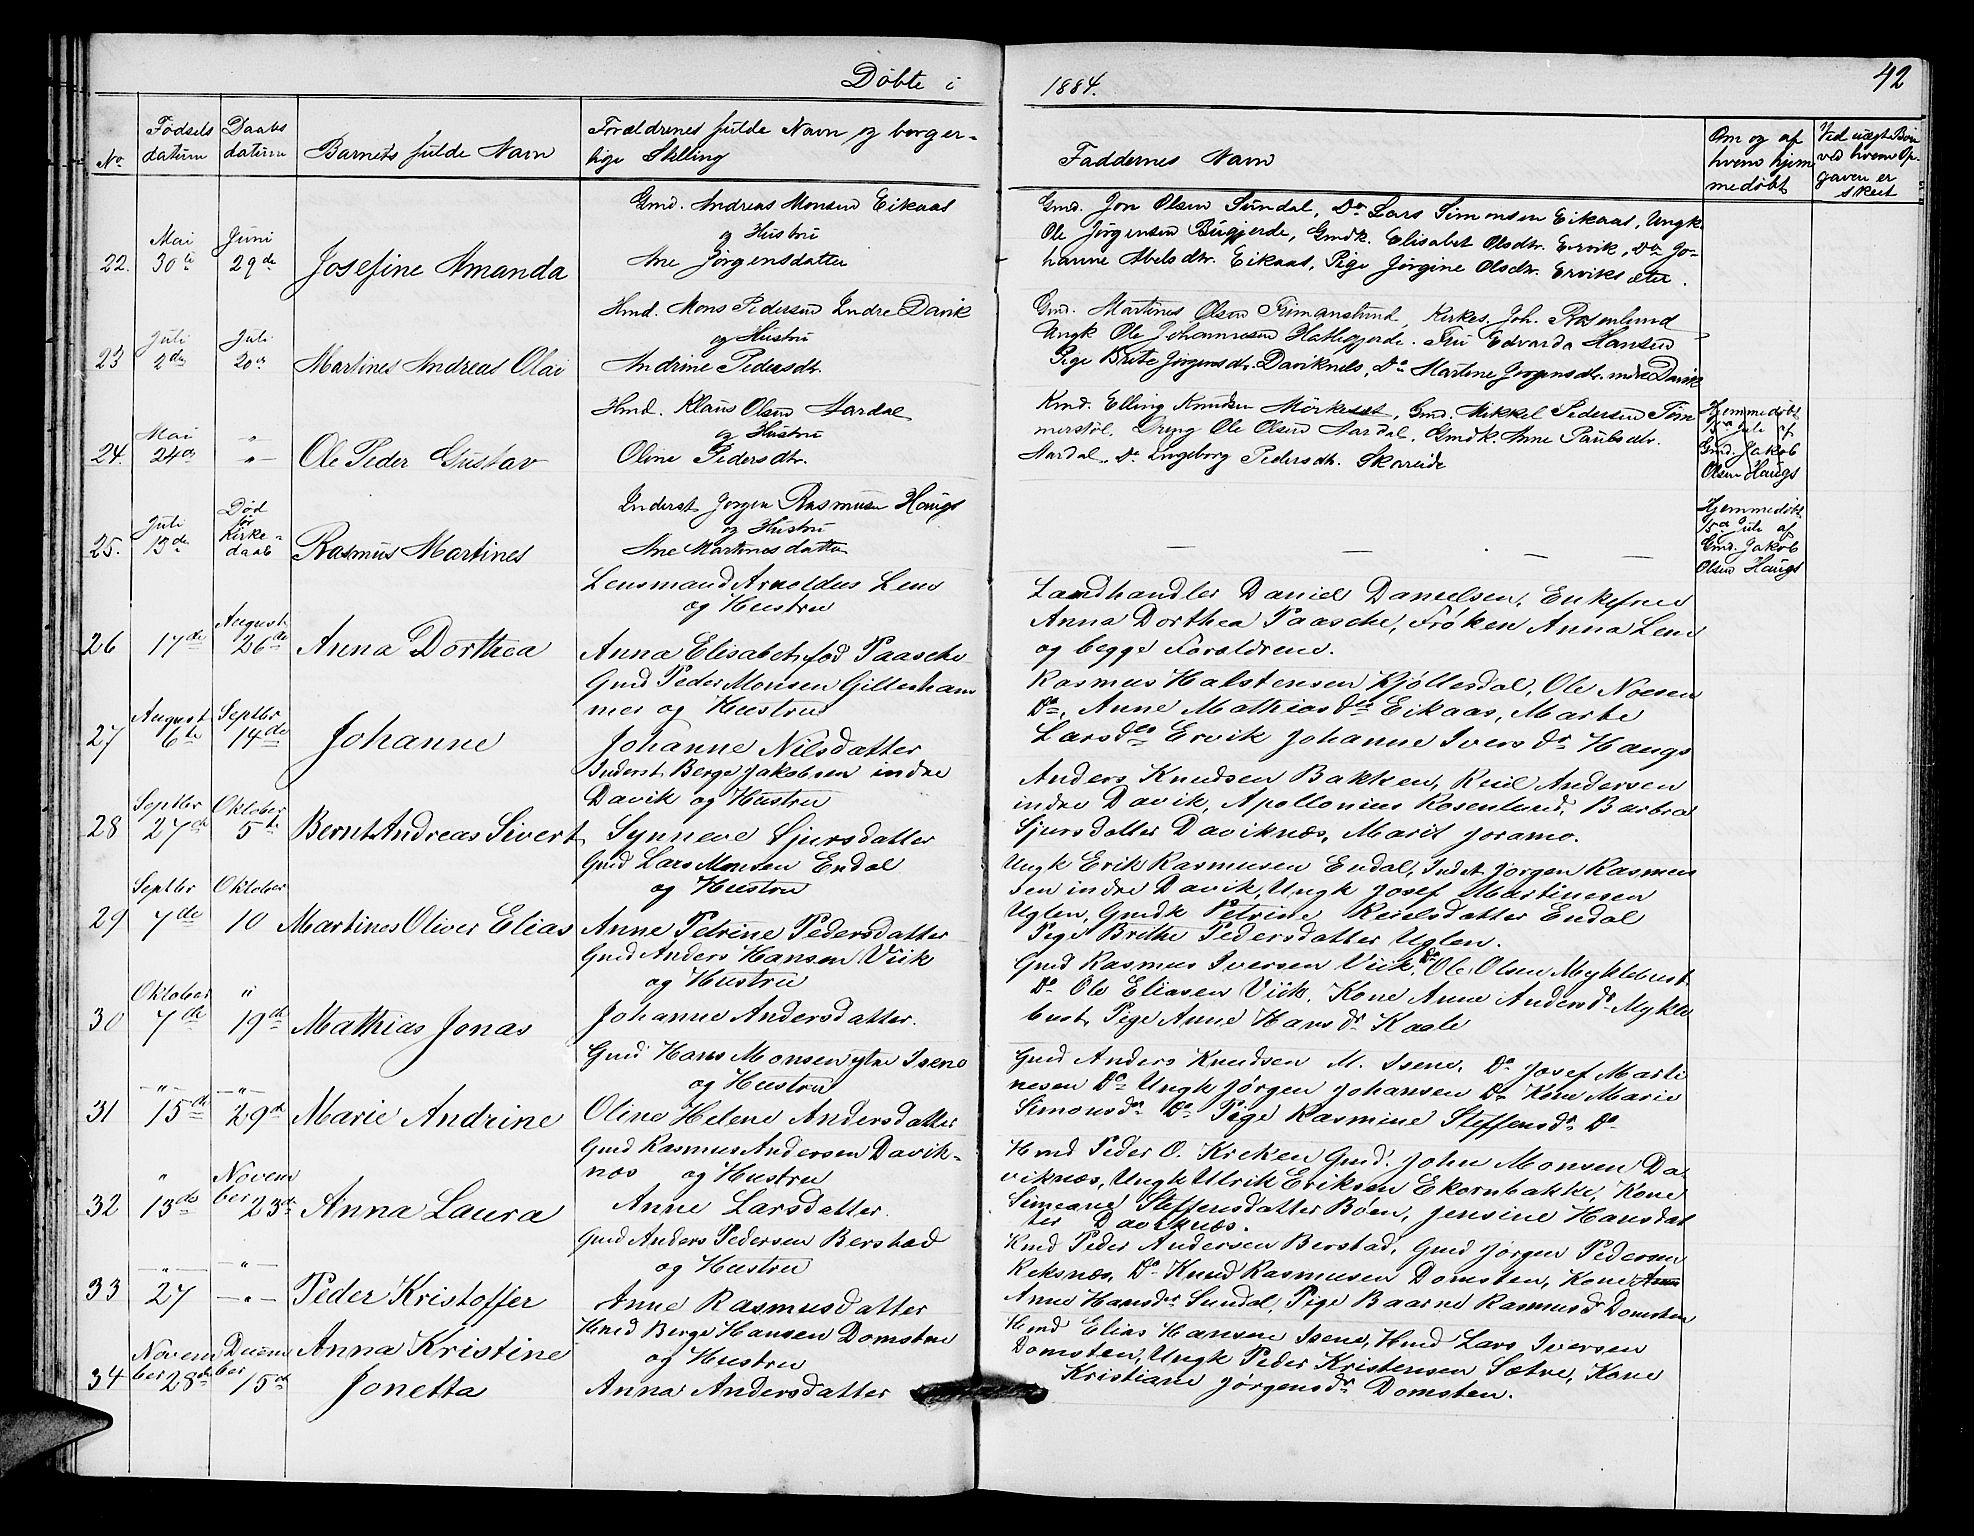 Døbte i 1884. 42
No.
Fødsels
datum
Daabs
datum
Barnets fulde Navn
Forældrenes fulde Navn og borger-
lige Stilling
Faddernes Navn
Om og af
hvem hjem
medøbt
Ved uægte Børn
ved hvem Op-
gaven er
skeet
22.
Mai
30te
Juni
29de
Josefine Amanda
Gmd. Andreas Monsen Eikaas
og Hustru
Ane Jørgensdatter
Gmd. Jon Olsen Sundal, Do Lars Simonsen Eikaas, Ungk.
Ole Jørgensen Bugjerde, Gmdk. Elisabet Olsdtr. Ervik, Do Jo-
hanne Abelsdtr. Eikaas, Pige Jørgine Olsdtr. Erviksæter.
23
Juli
2den
Juli
20de
Martines Andreas Olai
Hmd. Mons Pedersen Indre Davik
og Hustru
Andrine Pedersdtr.
Gmd. Martines Olsen Timanslund, Kirkes. Joh. Rosenlund
Ungk Ole Johannesen Hatlegjerde. Fru Edvarda Hansen
Pige Brite Jørgensdtr. Daviknes, Do Martine Jørgensdtr. indre Davik
24.
Mai
24de
"
"
Ole Peder Gustav
Hmd. Klaus Olsen Aardal
og Hustru
Oline Pedersdtr.
Kmd. Elling Knudsen Mörkeset, Gmd. Mikkel Pedersen Töm
merstøl, Dreng Ole Olsen Aardal, Gmdk. Anne Paulsdtr.
Aardal, Do Ingeborg Pedersdtr. Skareide
Hjemmedøbt
Juli af
Gmd. Jakob
Olsen Haugs
25.
Juli
13de
Død
før
Kirke-
daab
Rasmus Martines
Inderst Jørgen Rasmusen Haugs
og Hustru
Ane Martinesdatter
— — — —
Hjemmedøbt
15de Juli af
Gmd. Jakob
Olsen Haugs
26
17de
August
26de
Anna Dorthea
Lensmand Arnoldus Lem
og Hustru
Anna Elisabet, fød Paasche
Landhandler Daniel Danielsen, Enkefrue
Anna Dorthea Paasche, Frøken Anna Lem
og begge Forældrene.
27
August
6te
Septbr
14de
Johanne
Gmd Peder Monsen Gillesham
mer og Hustru
Johanne Nilsdatter
Rasmus Halstensen Kjøllesdal, Ole Noesen
Do, Anne Mathiasdtr Eikaas, Marte
Larsdtr Ervik Johanne Iversdr Haugs
28
Septbr
27de
Oktober
5te
Bernt Andreas Sivert
Inderst Berge Jakobsen indre
Davik og Hustru
Synneve Sjursdatter
Anders Knudsen Bakken, Reiel Andersen
indre Davik, Apollonius Rosenlund, Barbra
Sjursdatter Daviknæs, Marit Joramo.
29
Septbr
7de
Oktober
10
Martines Oliver Elias
Gmd Lars Monsen Endal
og Hustru
Anne Petrine Pedersdatter
Ungk Erik Rasmusen Endal, Indst Jørgen Rasmus
sen indre Davik, Ungk Josef Martinesen
Uglen, Gmdk Petrine Reielsdatter Endal
Pige Brithe Pedersdatter Uglen.
30
Oktober
7de
"
19de
Mathias Jonas
Gmd Anders Hansen Viik
og Hustru
Johanne Andersdatter.
Gmd Rasmus Iversen Viik, Do Ole Olsen Myklebust
Do Ole Eliasen Viik, Kone Anne Andersdr Mykle
bust, Pige Anne Hansdr Kaale
31
—"—
15de
—"—
29de
Marie Andrine
Gmd Hans Monsen ytre Isene
og Hustru
Oline Helene Andersdatter
Gmd Anders Knudsen M. Isene, Do Josef Marti
nesen Do Ungk Jørgen Johansen Do Kone Marie
Simonsdr Do Pige Rasmine Steffensdr Do
32
"
13de
Novem
ber 23de
Anna Laura
Gmd Rasmus Andersen Davik-
næs og Hustru
Anne Larsdatter.
Hmd Peder O. Kreken Gmd. John Monsen Da-
viknæs, Ungk Ulrik Eriksen Ekornbakke, Kone
Simeane Steffensdatter Bøen, Jensine Hansdat
ter Daviknæs.
33
—"—
27
—"—
—"—
Peder Kristoffer
Gmd Anders Pedersen Berstad
og Hustru
Anne Rasmusdatter
Kmd Peder Andersen Berstad, Gmd Jørgen Pedersen
Reksnæs, Do Knud Rasmusen Domsten, Kone
Anne Hansdr Sundal, Pige Baarne Rasmusdr Domsten
34
Novem
ber 28de
Decem
ber 15de
Anna Kristine
Jonetta
Hmd Berge Hansen Domsten
og Hustru
Anna Andersdatter
Hmd Elias Hansen Isene, Hmd Lars Iversen
Domsten, Ungk Peder Kristensen Sætre, Kone
Kristiane Jørgensdr Domsten.